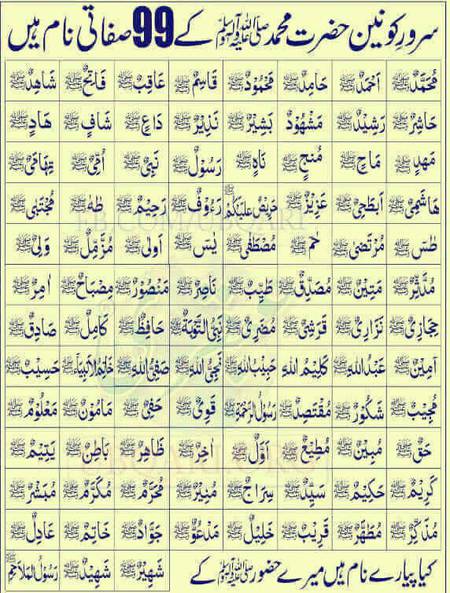 سرورِ کونین حضرت محمد ﷺ کے 99 صفاتی نام ہیں
مُحَمَّدٌ ﷺ اَحْمَدٌ ﷺ حَامِدٌ ﷺ مَحْمُوْدٌ ﷺ قَاسِمٌ ﷺ عَاقِبٌ ﷺ فَاتِحٌ ﷺ شَاهِدٌ ﷺ
حَاشِرٌ ﷺ رَشِیْدٌ ﷺ مَشْهُوْدٌ ﷺ بَشِیْرٌ ﷺ نَذِیْرٌ ﷺ دَاعٍ ﷺ شَافٍ ﷺ هَادٍ ﷺ
مَهْدٍ ﷺ مَاحٍ ﷺ مُنْجٍ ﷺ نَاهٍ ﷺ رَسُوْلٌ ﷺ نَبِیٌّ ﷺ اُمِّیٌّ ﷺ تِهَامِیٌّ ﷺ
هَاشِمِیٌّ ﷺ اَبْطَحِیٌّ ﷺ عَزِیْزٌ ﷺ حَرِیْصٌ عَلَیْکُمْ ﷺ رَءُوْفٌ ﷺ رَحِیْمٌ ﷺ طٰهٰ ﷺ مُجْتَبٰی ﷺ
طٰسٓ ﷺ مُرْتَضٰی ﷺ حٰمٓ ﷺ مُصْطَفٰی ﷺ یٰسٓ ﷺ اَوْلٰی ﷺ مُزَّمِّلٌ ﷺ وَلِیٌّ ﷺ
مُدَّثِّرٌ ﷺ مَتِیْنٌ ﷺ مُصَدِّقٌ ﷺ طَیِّبٌ ﷺ نَاصِرٌ ﷺ مَنْصُوْرٌ ﷺ مِصْبَاحٌ ﷺ اٰمِرٌ ﷺ
حِجَازِیٌّ ﷺ نَزَارِیٌّ ﷺ قَرَشِیٌّ ﷺ مُضَرِیٌّ ﷺ نَبِیُّ التَّوْبَةِ ﷺ حَافِظٌ ﷺ کَامِلٌ ﷺ صَادِقٌ ﷺ
اَمِیْنٌ ﷺ عَبْدُاللّٰهِ ﷺ کَلِیْمُ اللّٰهِ ﷺ حَبِیْبُ اللّٰهِ ﷺ نَجِیُّ اللّٰهِ ﷺ صَفِیُّ اللّٰهِ ﷺ خَاتَمُ الْاَنْبِیَاءِ ﷺ حَسِیْبٌ ﷺ
مُجِیْبٌ ﷺ شَکُوْرٌ ﷺ مُقْتَصِدٌ ﷺ رَسُوْلُ الرَّحْمَةِ ﷺ قَوِیٌّ ﷺ حَفِیٌّ ﷺ مَامُوْنٌ ﷺ مَعْلُوْمٌ ﷺ
حَقٌّ ﷺ مُبِیْنٌ ﷺ مُطِیْعٌ ﷺ اَوَّلٌ ﷺ اٰخِرٌ ﷺ ظَاهِرٌ ﷺ بَاطِنٌ ﷺ یَتِیْمٌ ﷺ
کَرِیْمٌ ﷺ حَکِیْمٌ ﷺ سَیِّدٌ ﷺ سِرَاجٌ ﷺ مُنِیْرٌ ﷺ مُحَرَّمٌ ﷺ مُکَرَّمٌ ﷺ مُبَشِّرٌ ﷺ
مُذَکِّرٌ ﷺ مُطَهَّرٌ ﷺ قَرِیْبٌ ﷺ خَلِیْلٌ ﷺ مَدْعُوٌّ ﷺ جَوَّادٌ ﷺ خَاتِمٌ ﷺ عَادِلٌ ﷺ
کیا پیارے نام ہیں میرے حضور ﷺ کے شَهِیْرٌ ﷺ شَهِیْدٌ ﷺ رَسُوْلُ الْمَلَاحِمِ ﷺ